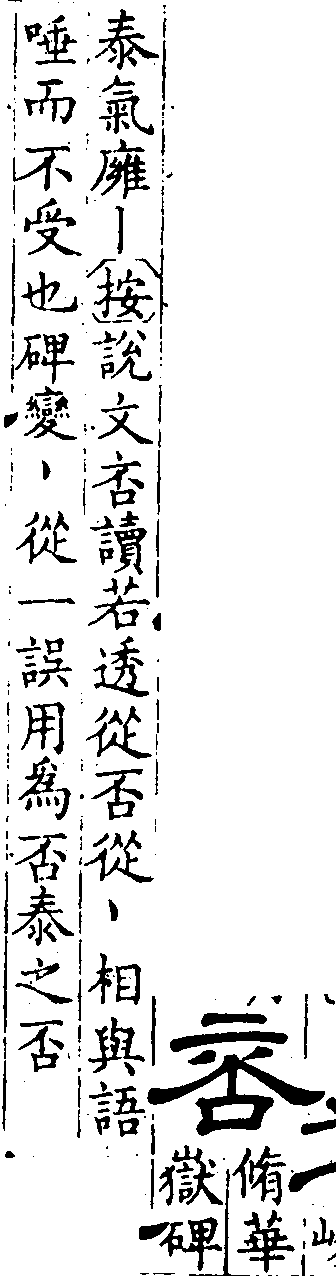 脩華
嶽碑
泰氣廱丨按說文咅讀若透從否從丶相與語
唾而不受也碑變丶從一誤用爲否泰之否